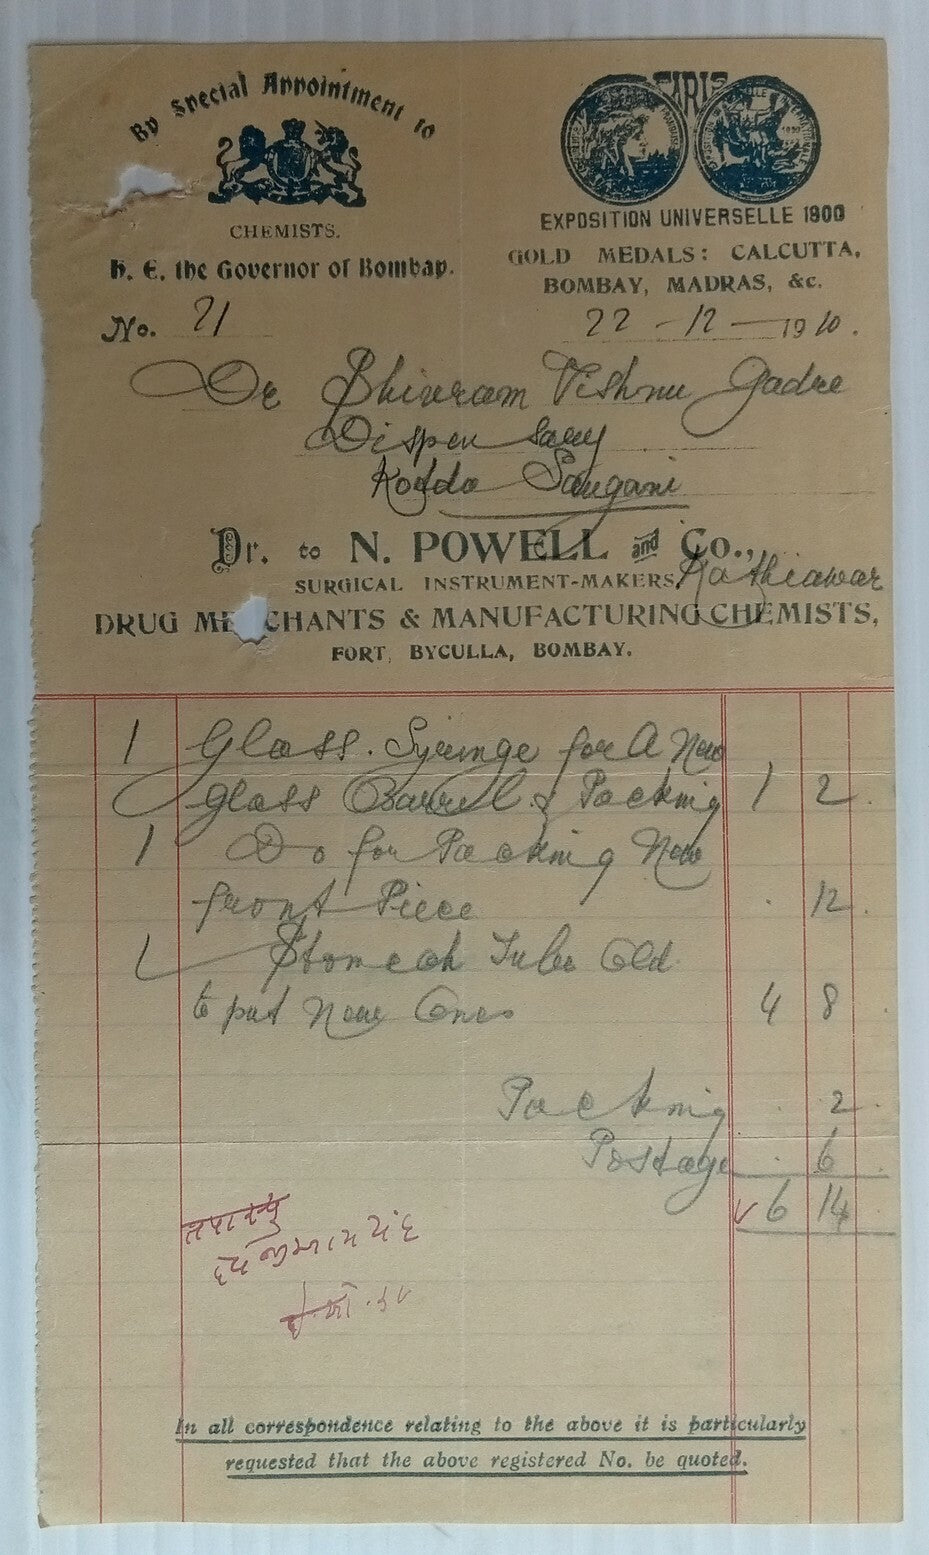 By Special Appointment to
CHEMISTS.
H. E. the Governor of Bombay.
PARIS
EXPOSITION UNIVERSELLE 1900
GOLD MEDALS: CALCUTTA,
BOMBAY, MADRAS, &c.
No. 21
22-12-1910.
Dr Shivram Vishnu Gadre
Dispensary
Kotda Sangani
Dr. to N. POWELL and Co.,
SURGICAL INSTRUMENT-MAKERS, Kathiawar
DRUG MERCHANTS & MANUFACTURING CHEMISTS,
FORT, BYCULLA, BOMBAY.
1 Glass. Syringe for A New
Glass Barrel & Packing 1 2.
1 Do for Packing New
front Piece . 12.
1 Stomach Tube Old
to put New Ones 4 8.
Packing . 2.
Postage . 6.
6 14
In all correspondence relating to the above it is particularly
requested that the above registered No. be quoted.